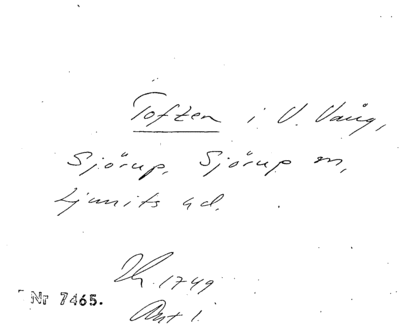 Toften i V. Vång,
Sjörup, Sjörup sn,
Ljunits hd.
1749
Akt 1.
Nr 7465.